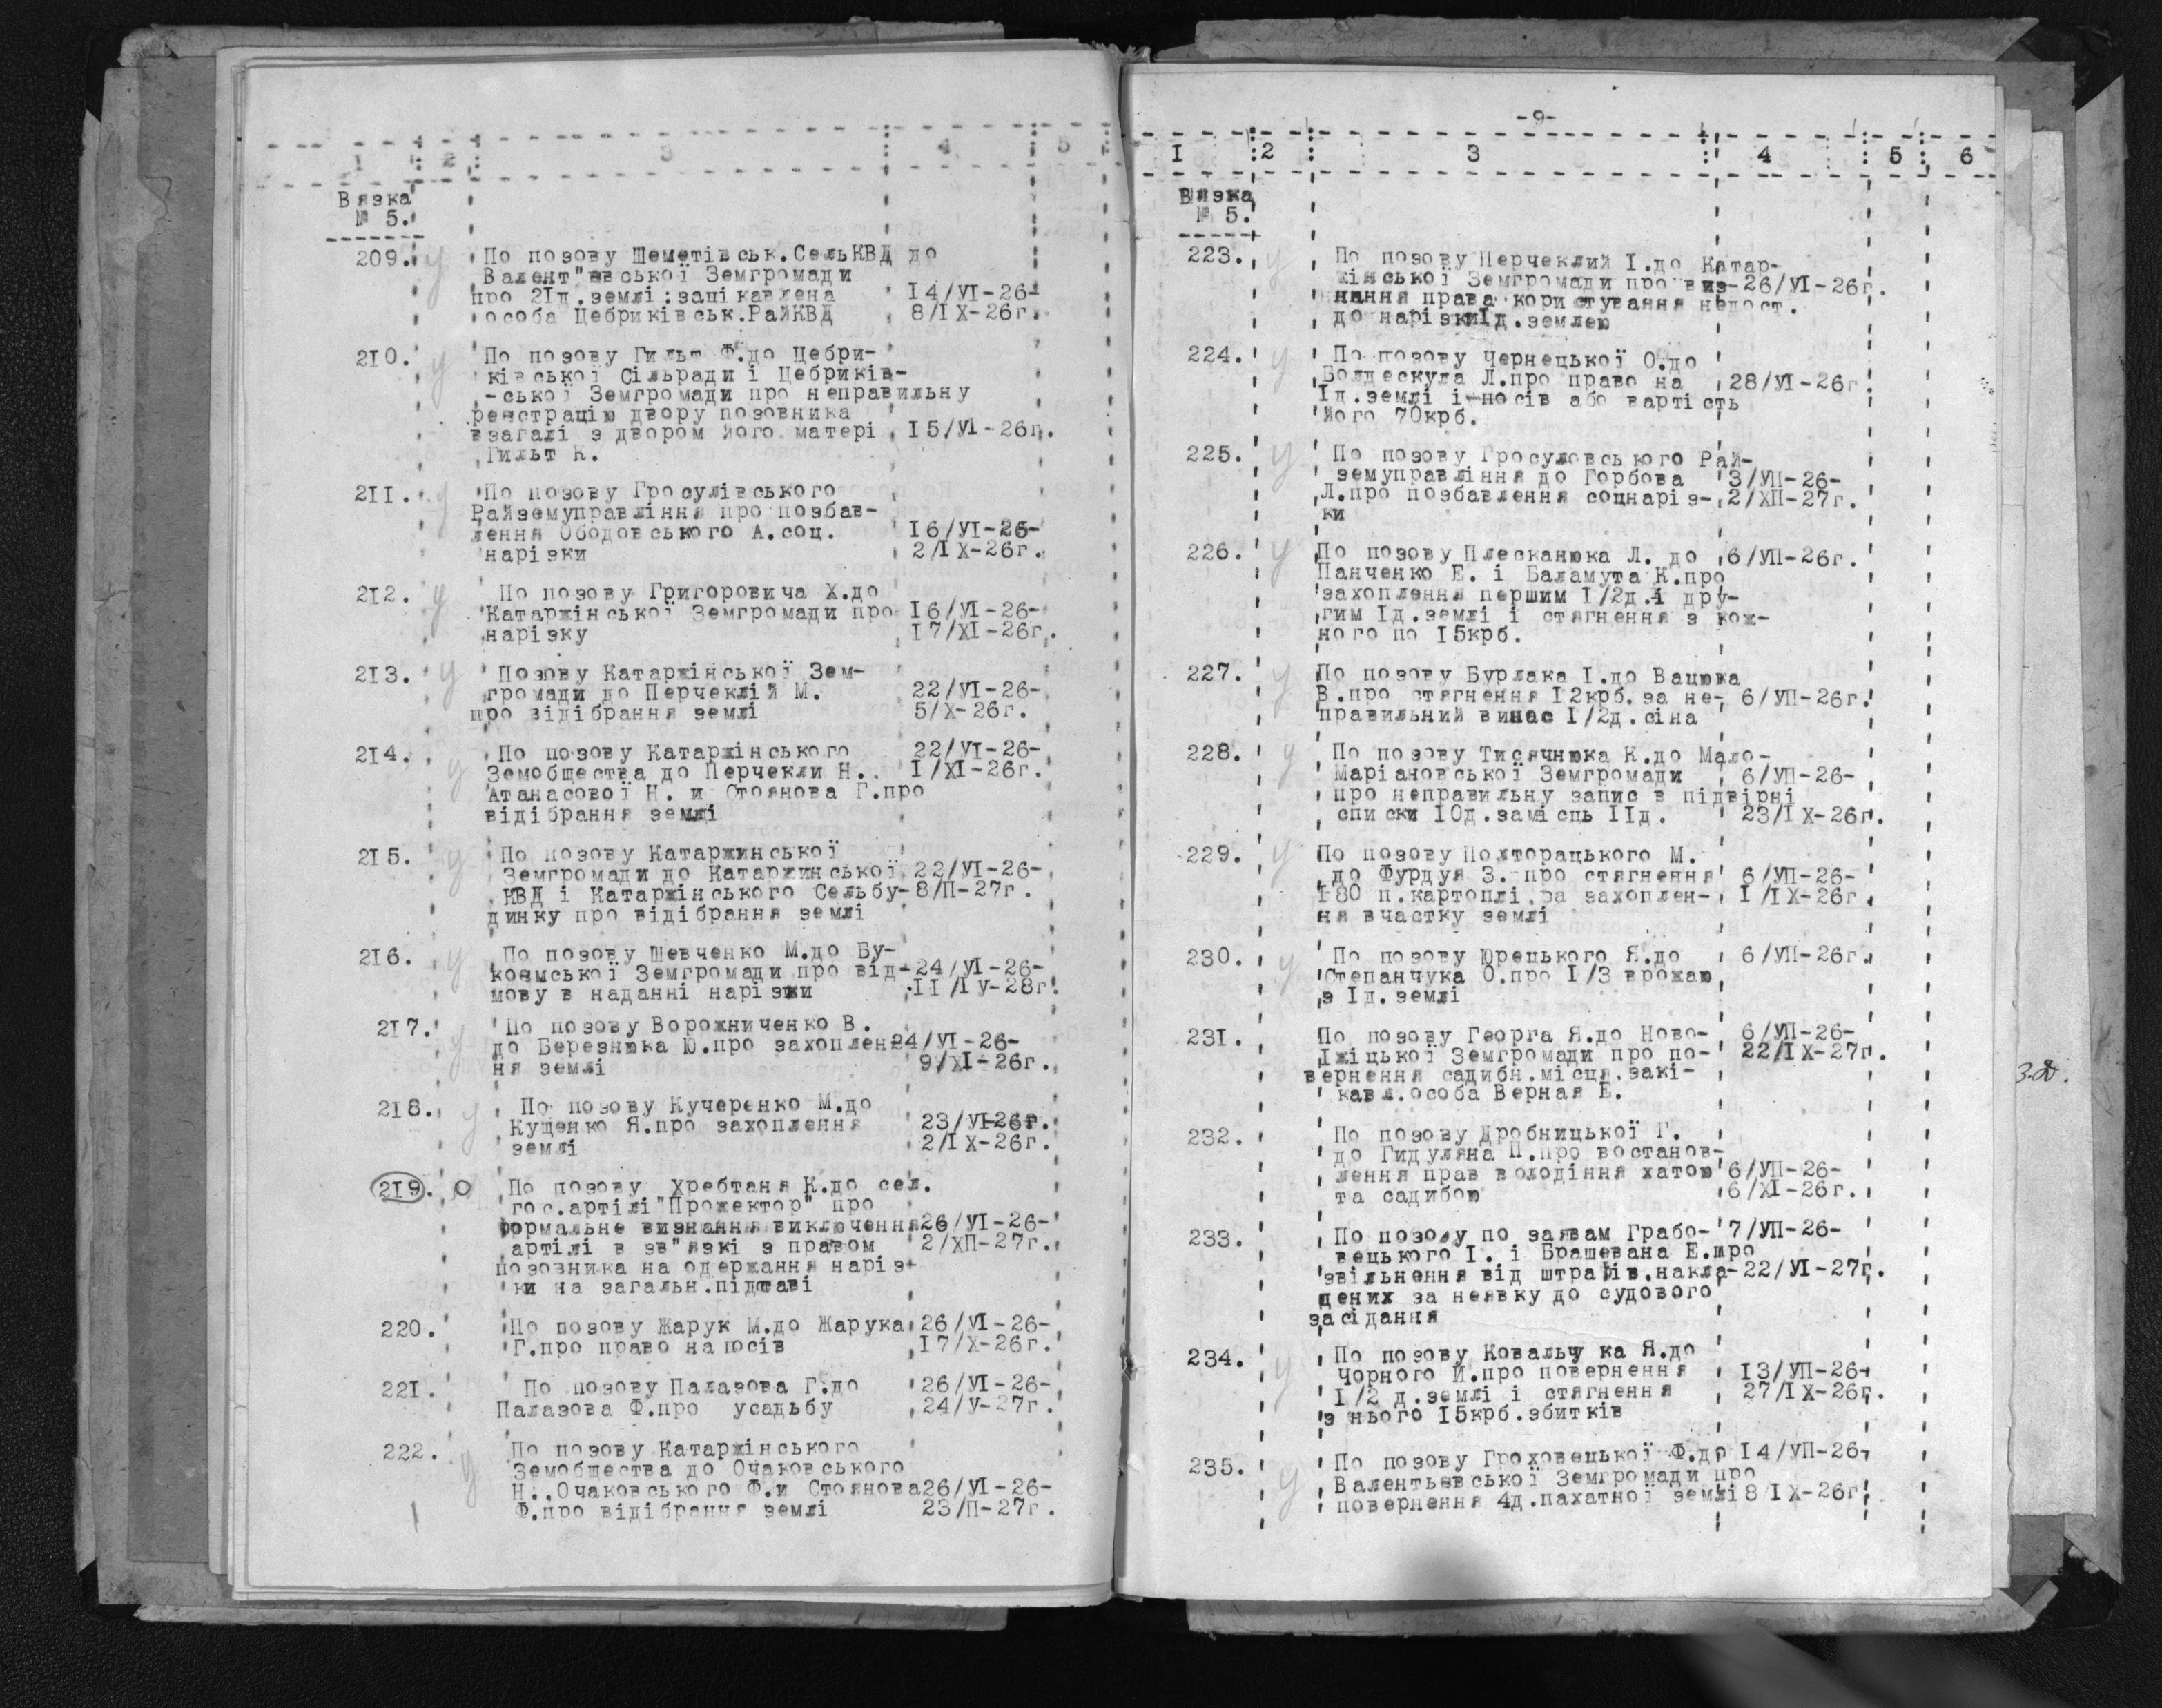 1 : 2 : 3 : 4 : 5 :
Вязка
№ 5.
209. у По позову Шеметівськ.СельКВД до
Валент"євської Земгромади
про 21д.землі:зацікавлена 14/УІ-26-
особа Цебриківськ.РайКВД 8/ІХ-26г.
210. у По позову Гильт Ф.до Цебри-
ківської Сільради і Цебриків-
-ської Земгромади про неправильну
реєстрацію двору позовника
взагалі з двором його матері 15/УІ-26г.
Гильт К.
211. у По позову Гросулівського
Райземуправління про позбав-
лення Ободовського А.соц. 16/УІ-26-
нарізки 2/ІХ-26г.
212. у По позову Григоровича Х.до
Катаржінської Земгромади про 16/УІ-26-
нарізку 17/ХІ-26г.
213. у Позову Катаржінської Зем-
громади до Перчеклій М. 22/УІ-26-
про відібрання землі 5/Х-26г.
214. у По позову Катаржінського 22/УІ-26-
Земобщества до Перчекли Н.. 1/ХІ-26г.
Атанасової Н. и Стоянова Г.про
відібрання землі
215. у По позову Катаржинської
Земгромади до Катаржинської 22/УІ-26-
КВД і Катаржінського Сельбу- 8/П-27г.
динку про відібрання землі
216. у По позову Шевченко М.до Бу-
коємської Земгромади про від- 24/УІ-26-
мову в наданні нарізки 11/ІУ-28г.
217. у По позову Ворожниченко В.
до Березнюка Ю.про захоплен-24/УІ-26-
ня землі 9/ХІ-26г.
218. у По позову Кучеренко М.до
Кущенко Я.про захоплення 23/УІ-26г.
землі 2/ІХ-26г.
219. О По позову Хребтаня К.до сел.
гос.артілі"Прожектор" про
формальне визнання виключення 26/УІ-26-
артілі в зв"язкі з правом 2/ХП-27г.
позовника на одержання наріз-
ки на загальн.підставі
220. По позову Жарук М.до Жарука 26/УІ-26-
Г.про право на посів 17/Х-26г.
221. По позову Палазова Г.до 26/УІ-26-
Палазова Ф.про усадьбу 24/У-27г.
222. у По позову Катаржінського
Земобщества до Очаковського
Н..Очаковського Ф.и Стоянова 26/УІ-26-
Ф.про відібрання землі 23/П-27г.
-9-
І :2 : 3 : 4 : 5 : 6
Вязка
№ 5.
223. у По позову Перчеклий І.до Катар-
жінської Земгромади про виз-26/УІ-26г.
нання права користування недост.
до нарізки1д.землею
224. у По позову Чернецької О.до
Болдескула Л.про право на 28/УІ-26г
1д.землі і посів або вартість
його 70крб.
225. у По позову Гросуловського Рай-
земуправління до Горбова 3/УП-26-
Л.про позбавлення соцнаріз- 2/ХП-27г.
ки
226. у По позову Плесканюка Л. до 6/УП-26г.
Панченко Е. і Баламута К.про
захоплення першим 1/2д.і дру-
гим 1д.землі і стягнення з кож-
ного по 15крб.
227. у По позову Бурлака І.до Вацюка
В.про стягнення 12крб.за не- 6/УП-26г.
правильний винас 1/2д.сіна
228. у По позову Тисячнюка К.до Мало-
Маріановської Земгромади 6/УП-26-
про неправильну запис в підвірні
списки 10д.замісць 11д. 23/ІХ-26г.
229. у По позову Полторацького М.
до Фурдуя З. про стягнення 6/УП-26-
180 п.картоплі за захоплен- 1/ІХ-26г.
ня вчастку землі
230. у По позову Юрецького Я.до 6/УП-26г.
Степанчука О.про 1/3 врожаю
з 1д.землі
231. По позову Георга Я.до Ново- 6/УП-26-
Іжіцької Земгромади про по- 22/ІХ-27г.
вернення садибн.місця.закі-
кавл.особа Верная Е.
232. По позову Дробницької Г.
до Гидуляна П.про востанов-
лення прав володіння хатою 6/УП-26-
та садибою 6/ХІ-26г.
233. По позову по заявам Грабо- 7/УП-26-
вецького І. і Брашевана Е.про
звільнення від штрафів.накла-22/УІ-27г.
дених за неявку до судового
засідання
234. у По позову Ковальчука Я.до
Чорного Й.про повернення 13/УП-26-
1/2 д.землі і стягнення 27/ІХ-26г.
з нього 15крб.збитків
235. у По позову Гроховецької Ф.до 14/УП-26-
ВалентьевськоїЗемгромади про
повернення 4д.пахатної землі 8/ІХ-26г.